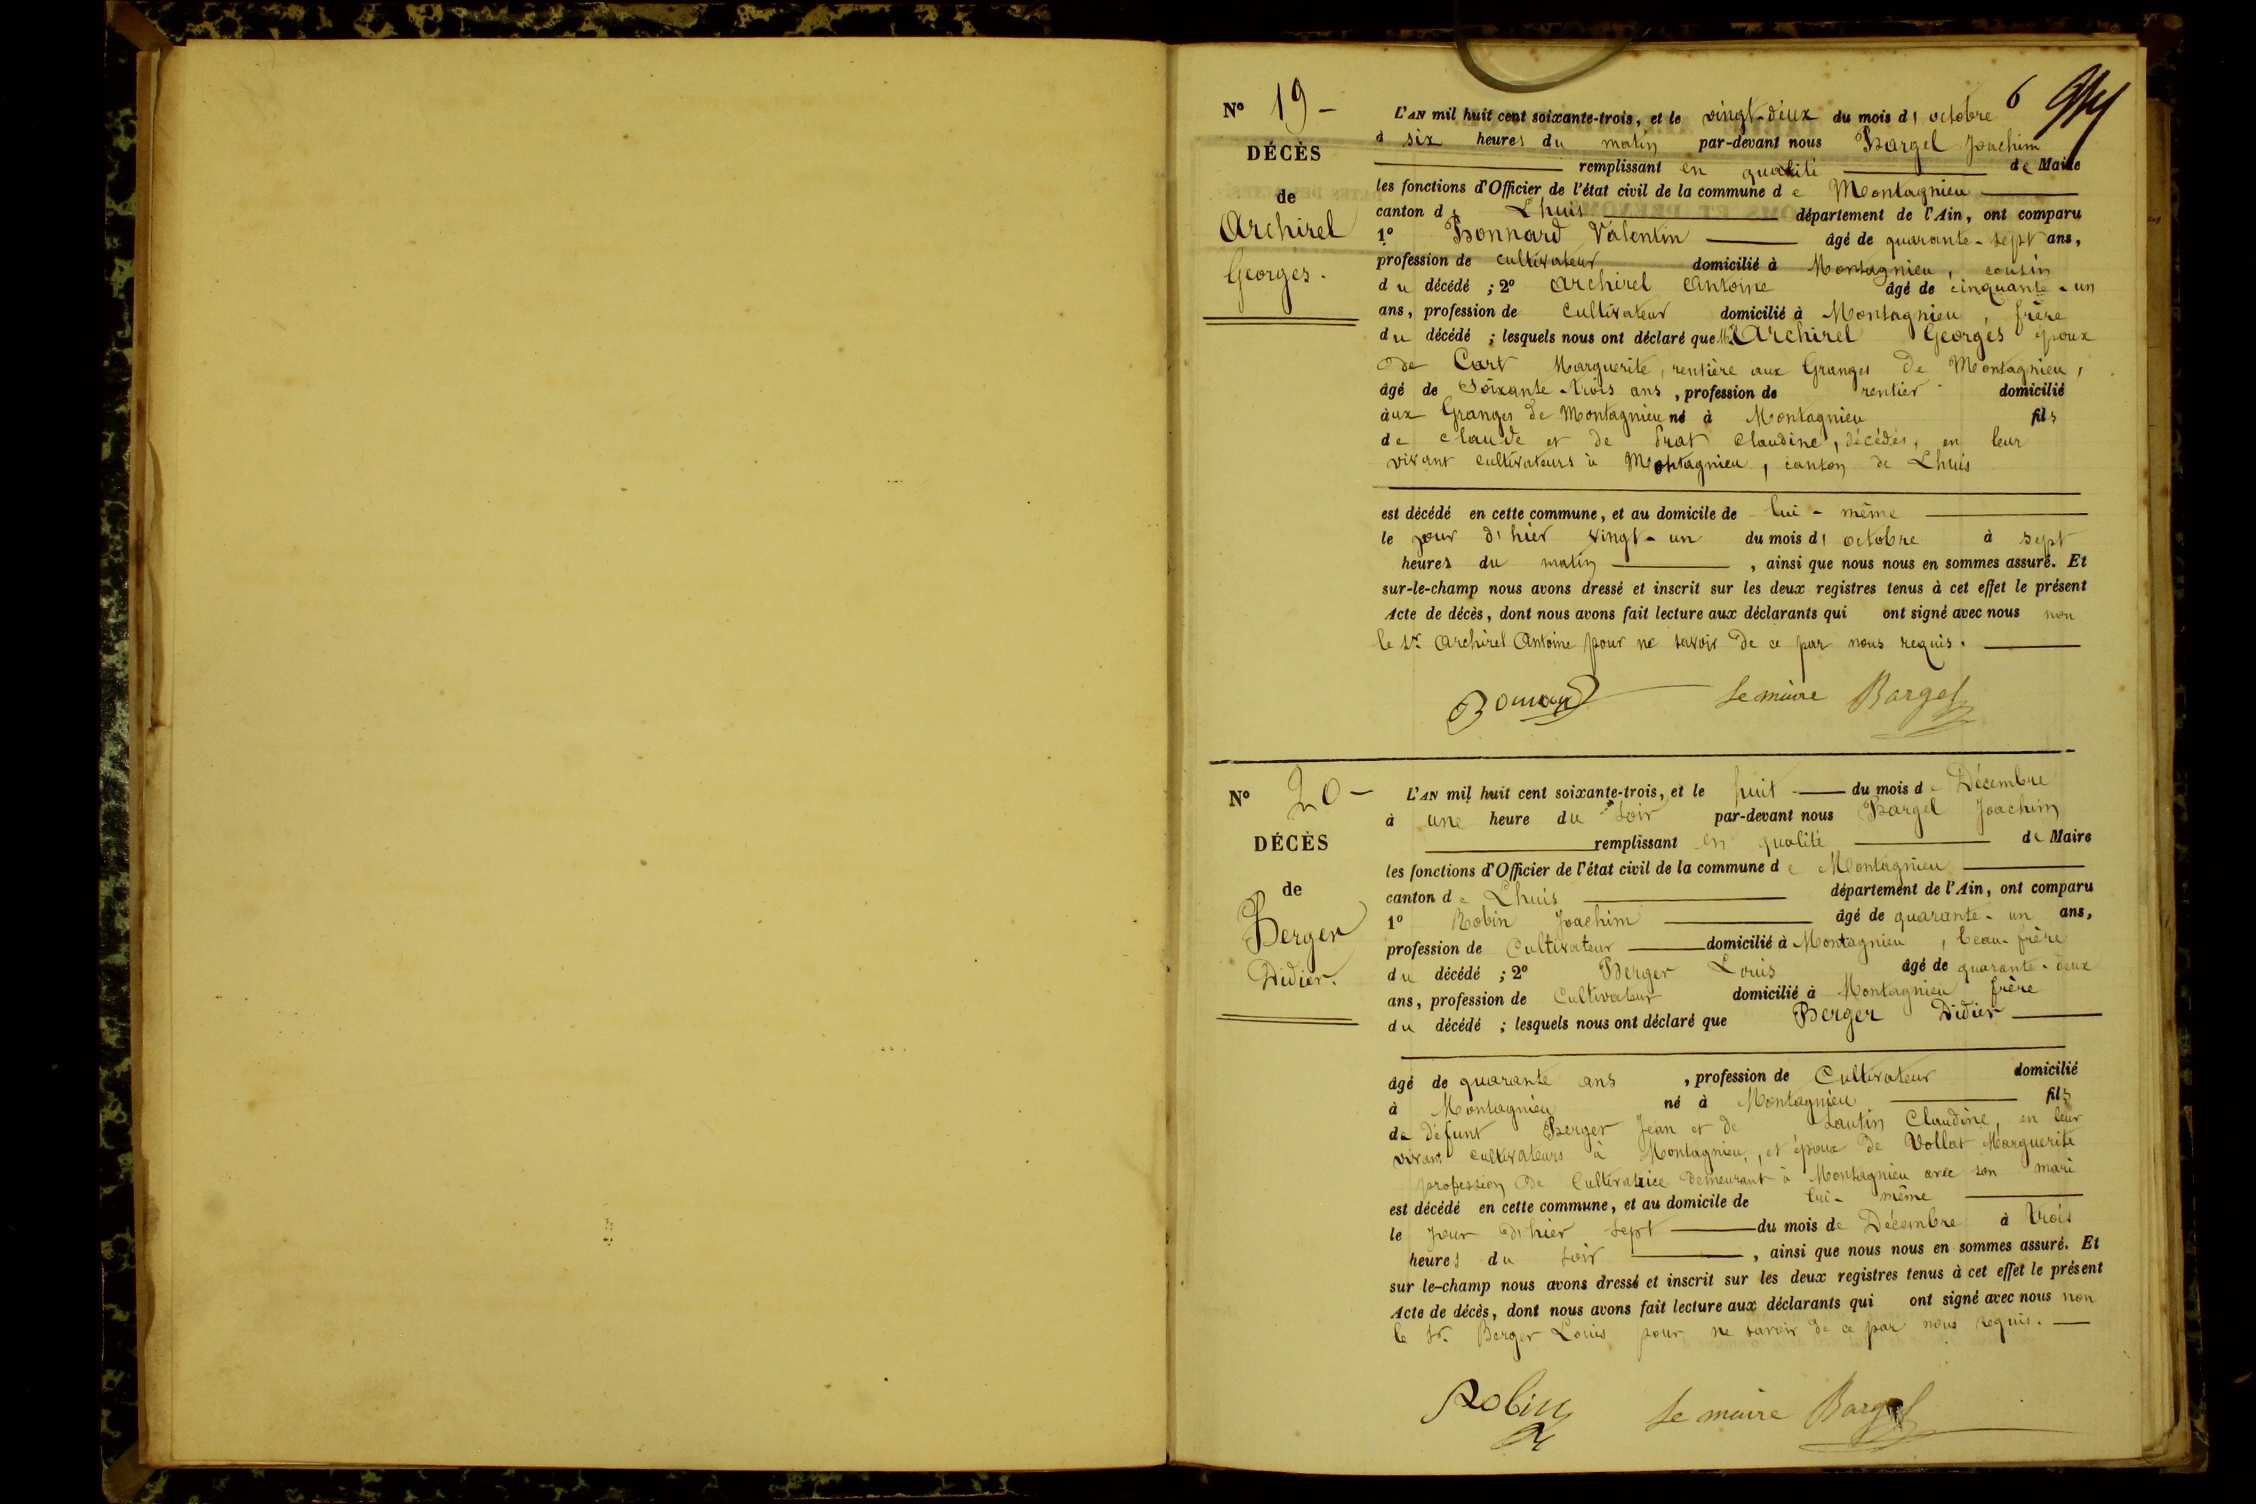 6
N° 19 -
DÉCÈS
de
Archirel
Georges.
L'AN mil huit cent soixante-trois, et le vingt-deux du mois d' octobre
à six heures du matin par-devant nous Bargel Joachim
remplissant en qualité de Maire
les fonctions d'Officier de l'état civil de la commune de Montagnieu
canton de Lhuis département de l'Ain, ont comparu
1° Bonnard Valentin âgé de quarante-sept ans,
profession de cultivateur domicilié à Montagnieu, cousin
du décédé ; 2° Archirel Antoine âgé de cinquante-un
ans, profession de Cultivateur domicilié à Montagnieu, frère
du décédé ; lesquels nous ont déclaré que Archirel Georges époux
de Cart Marguerite, rentière aux Granges de Montagnieu,
âgé de Soixante-trois ans, profession de rentier domicilié
aux Granges de Montagnieu né à Montagnieu fils
de Claude et de Prat Claudine, décédés, en leur
vivant cultivateurs à Montagnieu, canton de Lhuis
est décédé en cette commune, et au domicile de lui-même
le jour d'hier vingt-un du mois d' octobre à sept
heures du matin, ainsi que nous nous en sommes assuré. Et
sur-le-champ nous avons dressé et inscrit sur les deux registres tenus à cet effet le présent
Acte de décès, dont nous avons fait lecture aux déclarants qui ont signé avec nous non
le Sr. Archirel Antoine pour ne savoir de ce par nous requis.
Bonnard Le maire Bargel
N° 20 -
DÉCÈS
de
Berger
Didier.
L'AN mil huit cent soixante-trois, et le huit du mois de Décembre
à une heure du soir par-devant nous Bargel Joachim
remplissant en qualité de Maire
les fonctions d'Officier de l'état civil de la commune de Montagnieu
canton de Lhuis département de l'Ain, ont comparu
1° Robin Joachim âgé de quarante-un ans,
profession de Cultivateur domicilié à Montagnieu, beau-frère
du décédé ; 2° Berger Louis âgé de quarante-deux
ans, profession de Cultivateur domicilié à Montagnieu frère
du décédé ; lesquels nous ont déclaré que Berger Didier
âgé de quarante ans, profession de Cultivateur domicilié
à Montagnieu né à Montagnieu fils
de défunt Berger Jean et de Lautin Claudine, en leur
vivant cultivateurs à Montagnieu, et époux de Vollat Marguerite
profession de Cultivatrice demeurant à Montagnieu avec son mari
est décédé en cette commune, et au domicile de lui-même
le jour d'hier sept du mois de Décembre à trois
heures du soir, ainsi que nous nous en sommes assuré. Et
sur le-champ nous avons dressé et inscrit sur les deux registres tenus à cet effet le présent
Acte de décès, dont nous avons fait lecture aux déclarants qui ont signé avec nous non
le Sr. Berger Louis pour ne savoir de ce par nous requis.
Robin Le maire Bargel